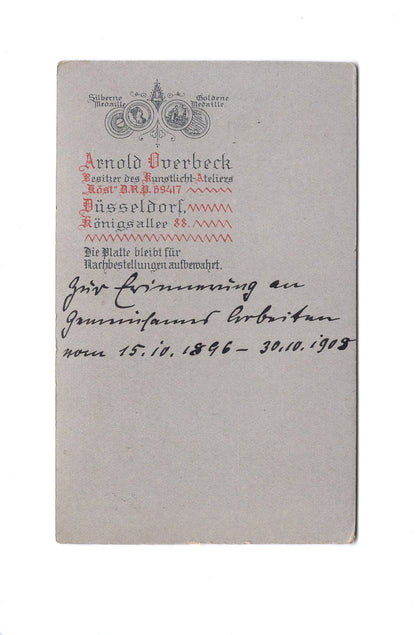 Silberne Medaille
Goldene Medaille
Arnold Overbeck
Besitzer des Kunstlicht-Ateliers
"Köst" D.R.P. 69417
Düsseldorf,
Königsallee 88.
Die Platte bleibt für
Nachbestellungen aufbewahrt.
Zur Erinnerung an
gemeinsames Arbeiten
vom 15.10.1896 – 30.10.1908